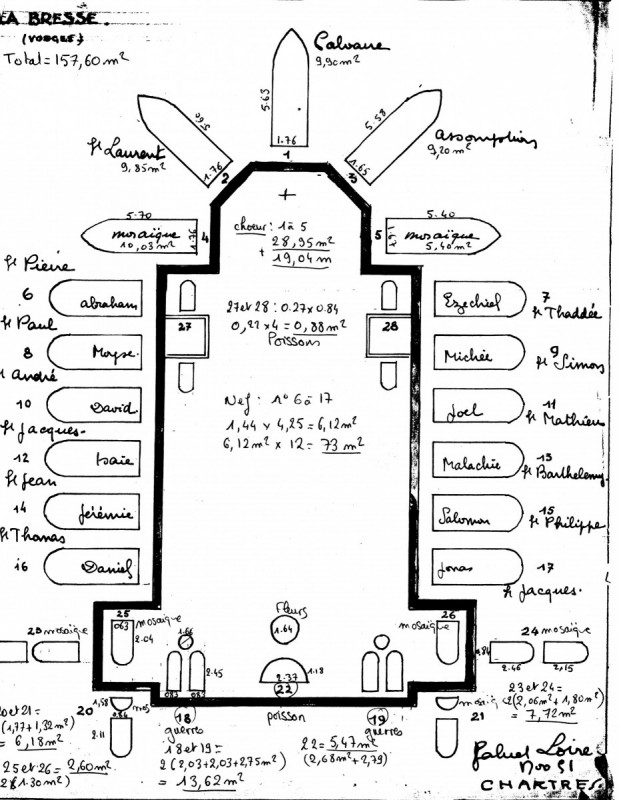 LA BRESSE.
(VOSGES)
Total = 157,60 m²
Calvaire
9,90 m²
5.63
1.76
1
5.60
St Laurent
9,85 m²
1.76
2
5.58
Assomption
9,20 m²
1.65
3
5.70
mosaïque
10,03 m²
1.76
4
5.40
mosaïque
5,40 m²
5
choeur : 1 à 5
28,95 m²
+ 19,04 m
St Pierre
6
abraham
Ezechiel
7
St Thaddée
27
27 et 28 : 0.27 x 0.84
0,22 x 4 = 0,88 m²
Poissons
28
St Paul
8
Moyse.
Michée
9
St Simon
St André
10
David
Nef : n° 6 à 17
1,44 x 4,25 = 6,12 m²
6,12 m² x 12 = 73 m²
Joel
11
St Mathieu
St Jacques.
12
Isaïe
Malachie
13
St Barthelemy.
St Jean
14
Jérémie
Salomon
15
St Philippe
St Thomas
16
Daniel
Jonas
17
St Jacques.
25
mosaïque
063
2.04
1.66
Fleurs
1.64
26
mosaïque
mosaïque
24 mosaïque
0.84
2.46
2,15
2.45
083
083
1.18
2.37
22
20
1,58
mos
0.84
2.11
18
guerres
poisson
19
guerres
mosaïq
21
20 et 21 =
(1,77 + 1,32 m²)
= 6,18 m²
25 et 26 = 2,60 m²
2 (1.30 m²)
18 et 19 =
2 (2,03 + 2,03 + 2,75 m²)
= 13,62 m²
22 = 5,47 m²
(2,68 m² + 2,79)
23 et 24 =
2 (2,06 m² + 1,80 m²)
= 7,72 m²
Gabriel Loire
Nov 51
CHARTRES.